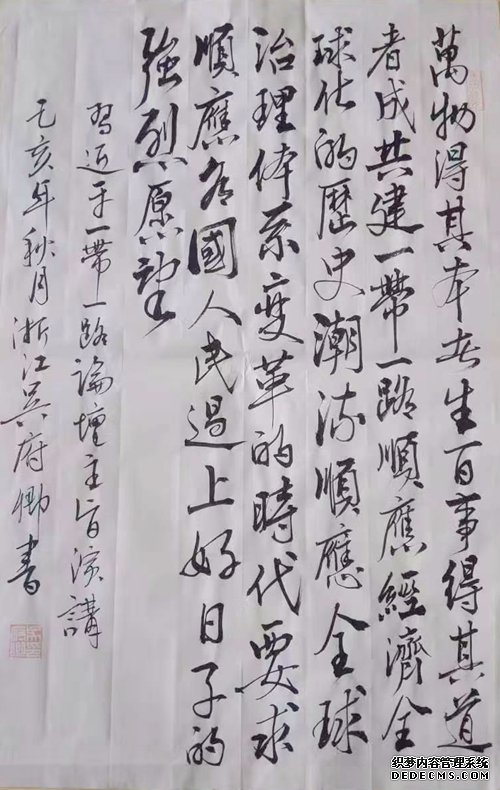 萬物得其本者生百事得其道
者成共建一帶一路順應經濟全
球化的歷史潮流順應全球
治理体系變革的時代要求
順應各國人民過上好日子的
強烈愿望
習近平一帶一路論壇主旨演講
己亥年秋月浙江吴府卿書
织梦内容管理系统
DEDECMS.COM